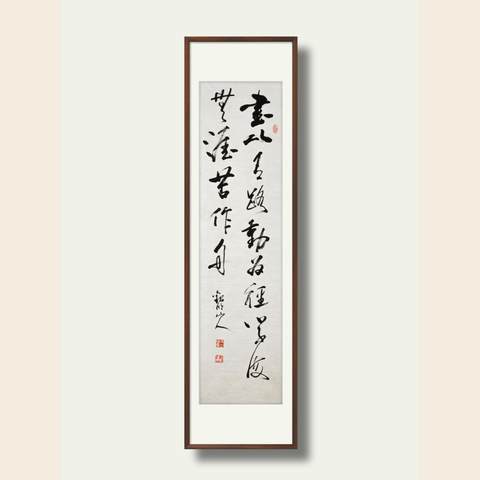 書山有路勤為徑學海
無涯苦作舟
山人